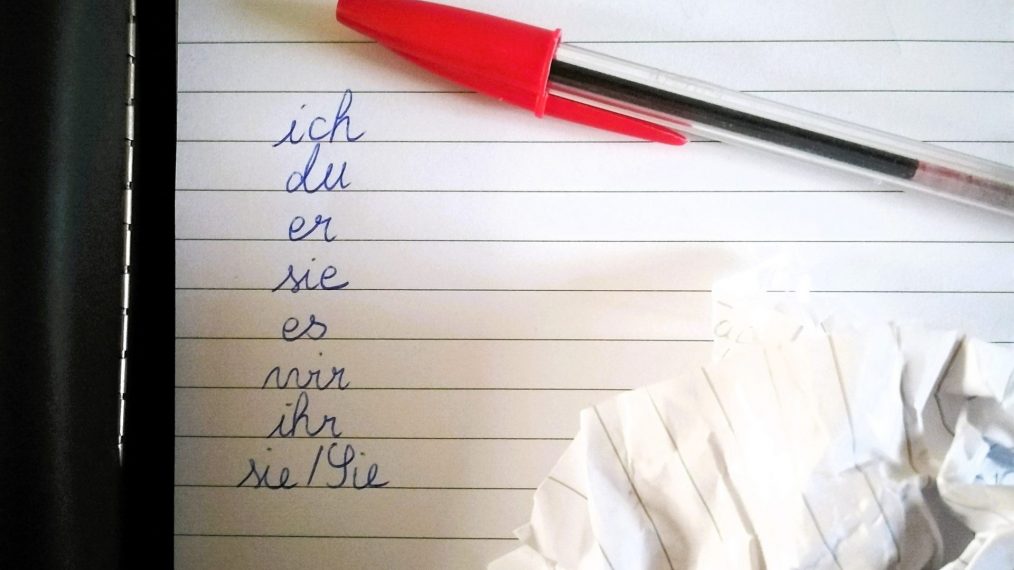 ich
du
er
sie
es
wir
ihr
sie/Sie